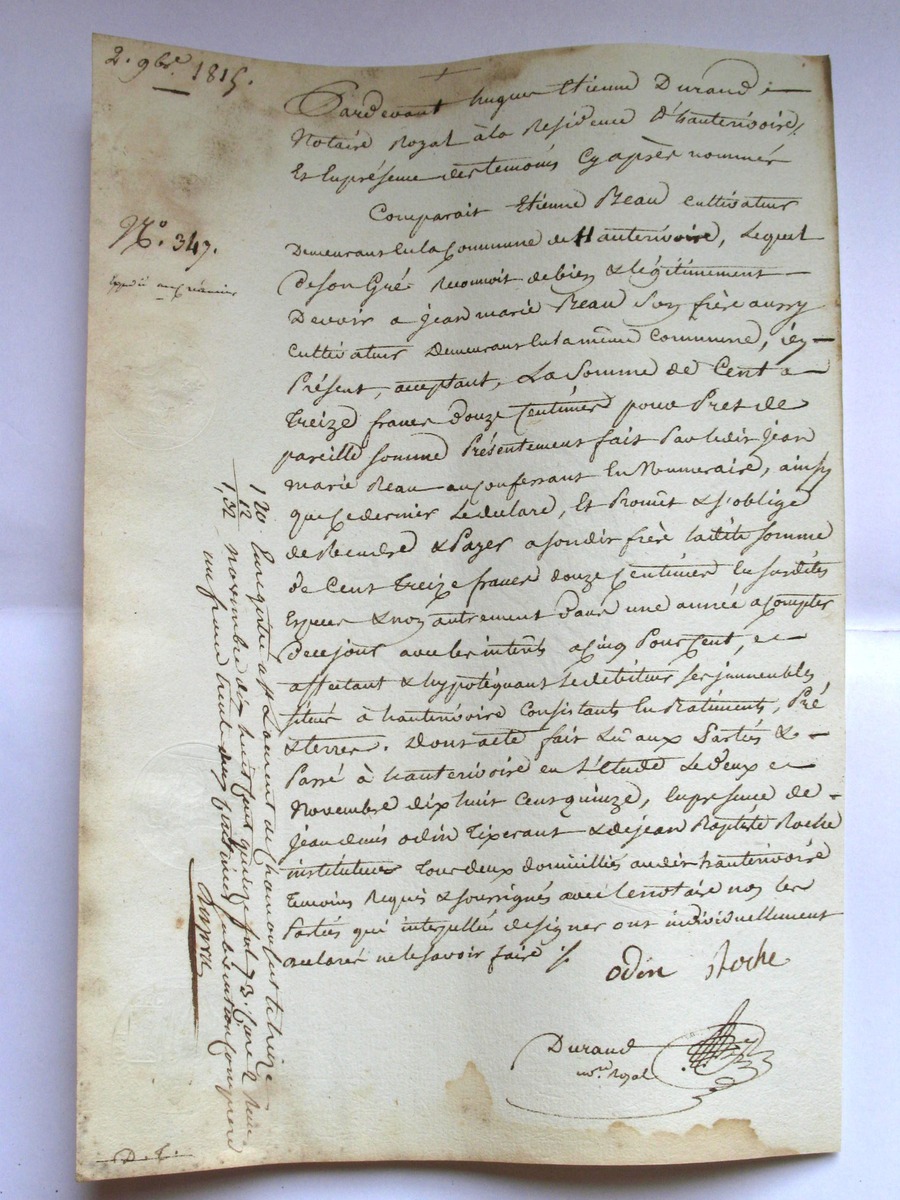 2. 9bre. 1815.
N.º 347.
expedié au créancier
Pardevant hugues Etienne Durand
Notaire Royal à la Residence d'hauterivoire,
Et En présence des temoins Cy après nommés
Comparait Etienne Beau Cultivateur
Demeurant En la Commune de Hauterivoire, Lequel
De son Gré Reconnoit de bien & légitimement
Devoir a Jean marie Beau Son frère aussy
Cultivateur Demeurant En la même Commune, icy
Présent, acceptant, La Somme de Cent
treize francs douze Centimes pour Pret de
pareille somme Présentement fait Par ledit Jean
marie Beau au Confessant En Numeraire, ainsy
que Ce dernier Le declare, Et Promet & s'oblige
de Rendre & Payer a son dit frère ladite somme
de Cent treize francs douze Centimes En susdites
Especes & non autrement dans une année a Compter
de ce jour avec les interêts a Cinq Pour Cent,
affectant & hypotéquant Le debiteur ses immeubles
situés à hauterivoire Consistants En Batiments, Pré
& terres. Dont acte fait Lû aux Parties &
Passé à hauterivoire en L'étude Le deux
Novembre dix huit Cent quinze, En presence de
Jean denis odin tixerant & de jean Baptiste Roche
instituteur tous deux domiciliés audit hauterivoire
temoins Requis & soussignés avec le notaire non les
Parties qui interpellées de signer ont individuellement
declaré ne le savoir faire ./.
odin Roche
Durand
nore. Royal
1 20
12
1,32
Enregistré a St Laurent de chamousset le treize
novembre dix huit cent quinze fol. 73. Case 2 Reçu
un franc trente deux centimes subvention comprise
D. C.